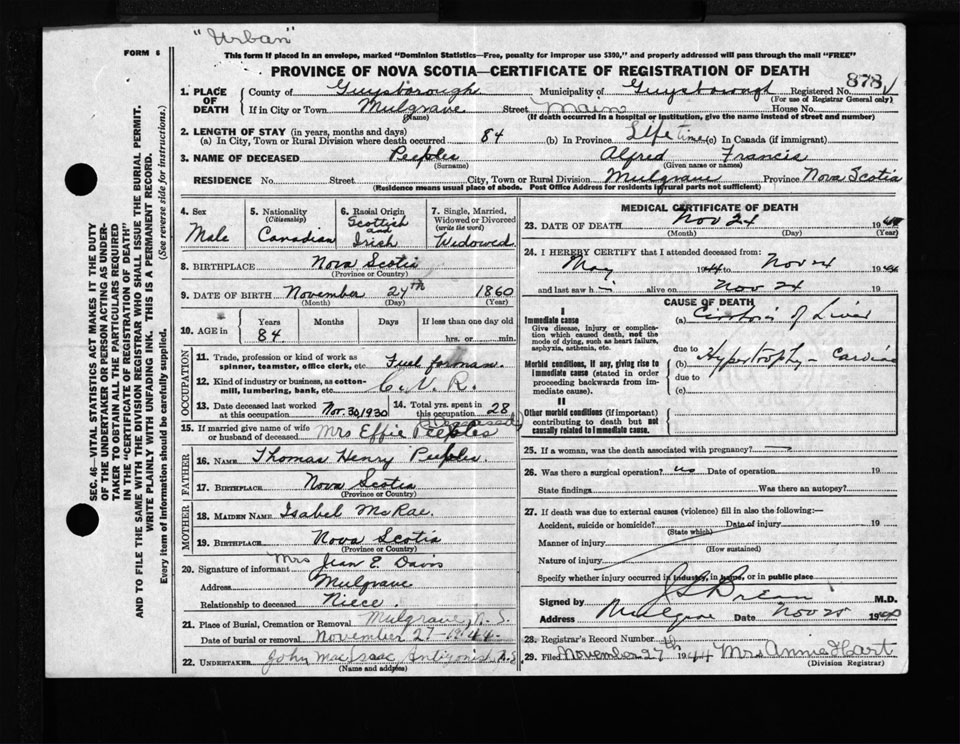 "Urban"
FORM 6
This form if placed in an envelope, marked "Dominion Statistics—Free, penalty for improper use $300," and properly addressed will pass through the mail "FREE"
PROVINCE OF NOVA SCOTIA—CERTIFICATE OF REGISTRATION OF DEATH
878
1. PLACE OF DEATH
County of Guysborough Municipality of Guysborough Registered No.
(For use of Registrar General only)
If in City or Town Mulgrave Street Main House No.
(Name) (If death occurred in a hospital or institution, give the name instead of street and number)
2. LENGTH OF STAY (in years, months and days)
(a) In City, Town or Rural Division where death occurred 84 (b) In Province Life time (c) In Canada (if immigrant)
3. NAME OF DECEASED Peeples Alfred Francis
(Surname) (Given name or names)
RESIDENCE No. Street City, Town or Rural Division Mulgrave Province Nova Scotia
(Residence means usual place of abode. Post Office Address for residents in rural parts not sufficient)
SEC. 46—VITAL STATISTICS ACT MAKES IT THE DUTY
OF THE UNDERTAKER OR PERSON ACTING AS UNDER-
TAKER TO OBTAIN ALL THE PARTICULARS REQUIRED
IN THE "CERTIFICATE OF REGISTRATION OF DEATH"
AND TO FILE THE SAME WITH THE DIVISION REGISTRAR WHO SHALL ISSUE THE BURIAL PERMIT.
WRITE PLAINLY WITH UNFADING INK. THIS IS A PERMANENT RECORD.
Every item of information should be carefully supplied. (See reverse side for instructions.)
4. Sex
Male
5. Nationality
(Citizenship)
Canadian
6. Racial Origin
Scottish
and
Irish
7. Single, Married,
Widowed or Divorced
(write the word)
Widowed
8. BIRTHPLACE Nova Scotia
(Province or Country)
9. DATE OF BIRTH November 27th 1860
(Month) (Day) (Year)
10. AGE in Years Months Days If less than one day old
84 hrs. or min.
OCCUPATION
11. Trade, profession or kind of work as
spinner, teamster, office clerk, etc. Fuel foreman
12. Kind of industry or business, as cotton-
mill, lumbering, bank, etc. C. N. R.
13. Date deceased last worked
at this occupation Nov. 30, 1930
14. Total yrs. spent in
this occupation 28
15. If married give name of wife
or husband of deceased Mrs Effie Peeples (deceased)
FATHER
16. NAME Thomas Henry Peeples.
17. BIRTHPLACE Nova Scotia
(Province or Country)
MOTHER
18. MAIDEN NAME Isabel McRae
19. BIRTHPLACE Nova Scotia
(Province or Country)
20. Signature of informant Mrs Jean E. Davis
Address Mulgrave
Relationship to deceased Niece.
21. Place of Burial, Cremation or Removal Mulgrave, N. S.
Date of burial or removal November 27-1944
22. UNDERTAKER John MacIsaac Antigonish N.S
(Name and address)
MEDICAL CERTIFICATE OF DEATH
23. DATE OF DEATH Nov 24 19
(Month) (Day) (Year)
24. I HEREBY CERTIFY that I attended deceased from:
May 1944 to Nov 24 19
and last saw h alive on Nov 24 19
CAUSE OF DEATH
I
Immediate cause
Give disease, injury or complica-
tion which caused death, not the
mode of dying, such as heart failure,
asphyxia, asthenia, etc.
(a) Cirrhosis of Liver
due to
Morbid conditions, if any, giving rise to
immediate cause (stated in order
proceeding backwards from im-
mediate cause).
(b) Hypertrophy - Cardiac
due to
(c)
II
Other morbid conditions (if important)
contributing to death but not
causally related to immediate cause.
25. If a woman, was the death associated with pregnancy?
26. Was there a surgical operation? no Date of operation 19
State findings Was there an autopsy?
27. If death was due to external causes (violence) fill in also the following:—
Accident, suicide or homicide? Date of injury 19
(State which)
Manner of injury
(How sustained)
Nature of injury
Specify whether injury occurred in industry, in home, or in public place
Signed by M.D.
Address Mulgrave Date Nov 19
28. Registrar's Record Number
29. Filed November 27th 1944 Mrs. Annie Hart
(Division Registrar)